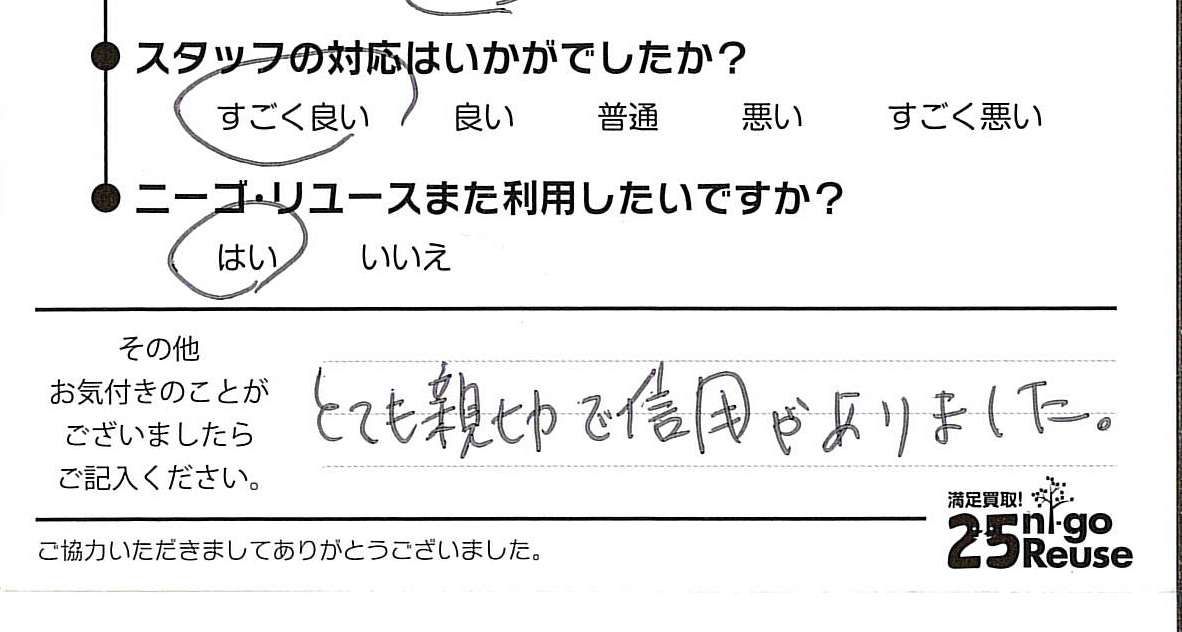 スタッフの対応はいかがでしたか？
すごく良い 良い 普通 悪い すごく悪い
ニーゴ・リユースまた利用したいですか？
はい いいえ
その他
お気付きのことが
ございましたら
ご記入ください。
とても親切で信用やありました。
満足買取!
25 ni-go
Reuse
ご協力いただきましてありがとうございました。